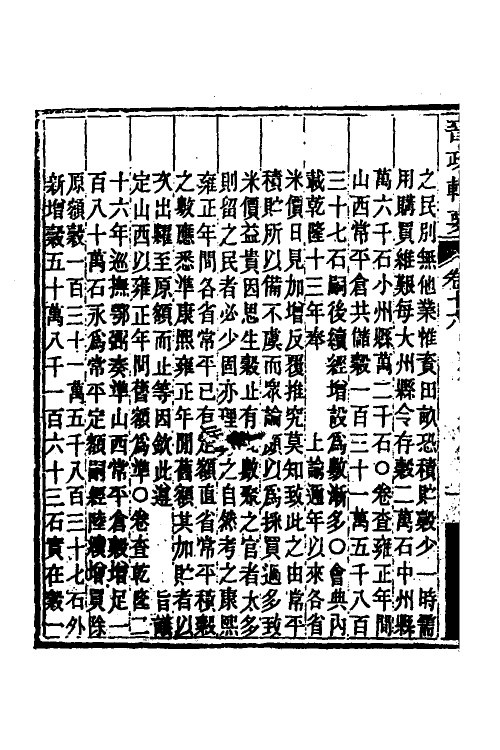 晉政輯要 卷十六
之民別無他業惟賚田畝恐積貯穀少一時需
用購買維艱每大州縣令存穀二萬石中州縣
萬六千石小州縣萬二千石〇卷查雍正年間
山西常平倉共儲穀一百三十一萬五千八百
三十七石嗣後續經增設爲數漸多〇會典內
載乾隆十三年奉 上諭邇年以來各省
米價日見加增反覆推究莫知致此之由常平
積貯所以備不虞而衆論頗以爲採買過多致
米價益貴因思生穀止有 數聚之官者太多
則留之民者必少固亦理 之自然考之康熙
雍正年間各省常平已有定額直省常平積穀
之數應悉準康熙雍正年間舊額其加貯者以
次出糶至原額而止等因欽此遵 旨議
定山西以雍正年間舊額爲準〇卷查乾隆二
十六年巡撫鄂弼奏準山西常平倉穀增足一
百八十萬石永爲常平定額嗣經陸續增買除
原額穀一百三十一萬五千八百三十七石外
新增穀五十萬八千一百六十三石實在穀一